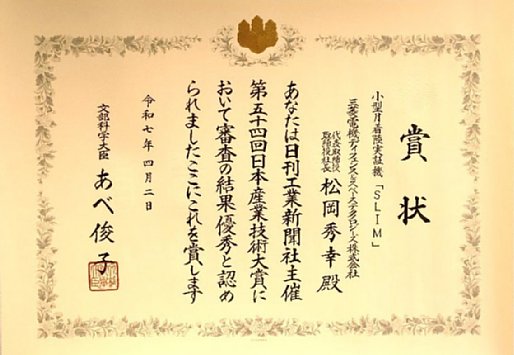 賞状
小型月着陸実証機「SLIM」
三菱電機ディフェンス&スペーステクノロジーズ株式会社
代表取締役
取締役社長
松岡秀幸殿
あなたは日刊工業新聞社主催
第五十四回日本産業技術大賞に
おいて審査の結果優秀と認め
られましたここにこれを賞します
令和七年四月二日
文部科学大臣 あべ俊子